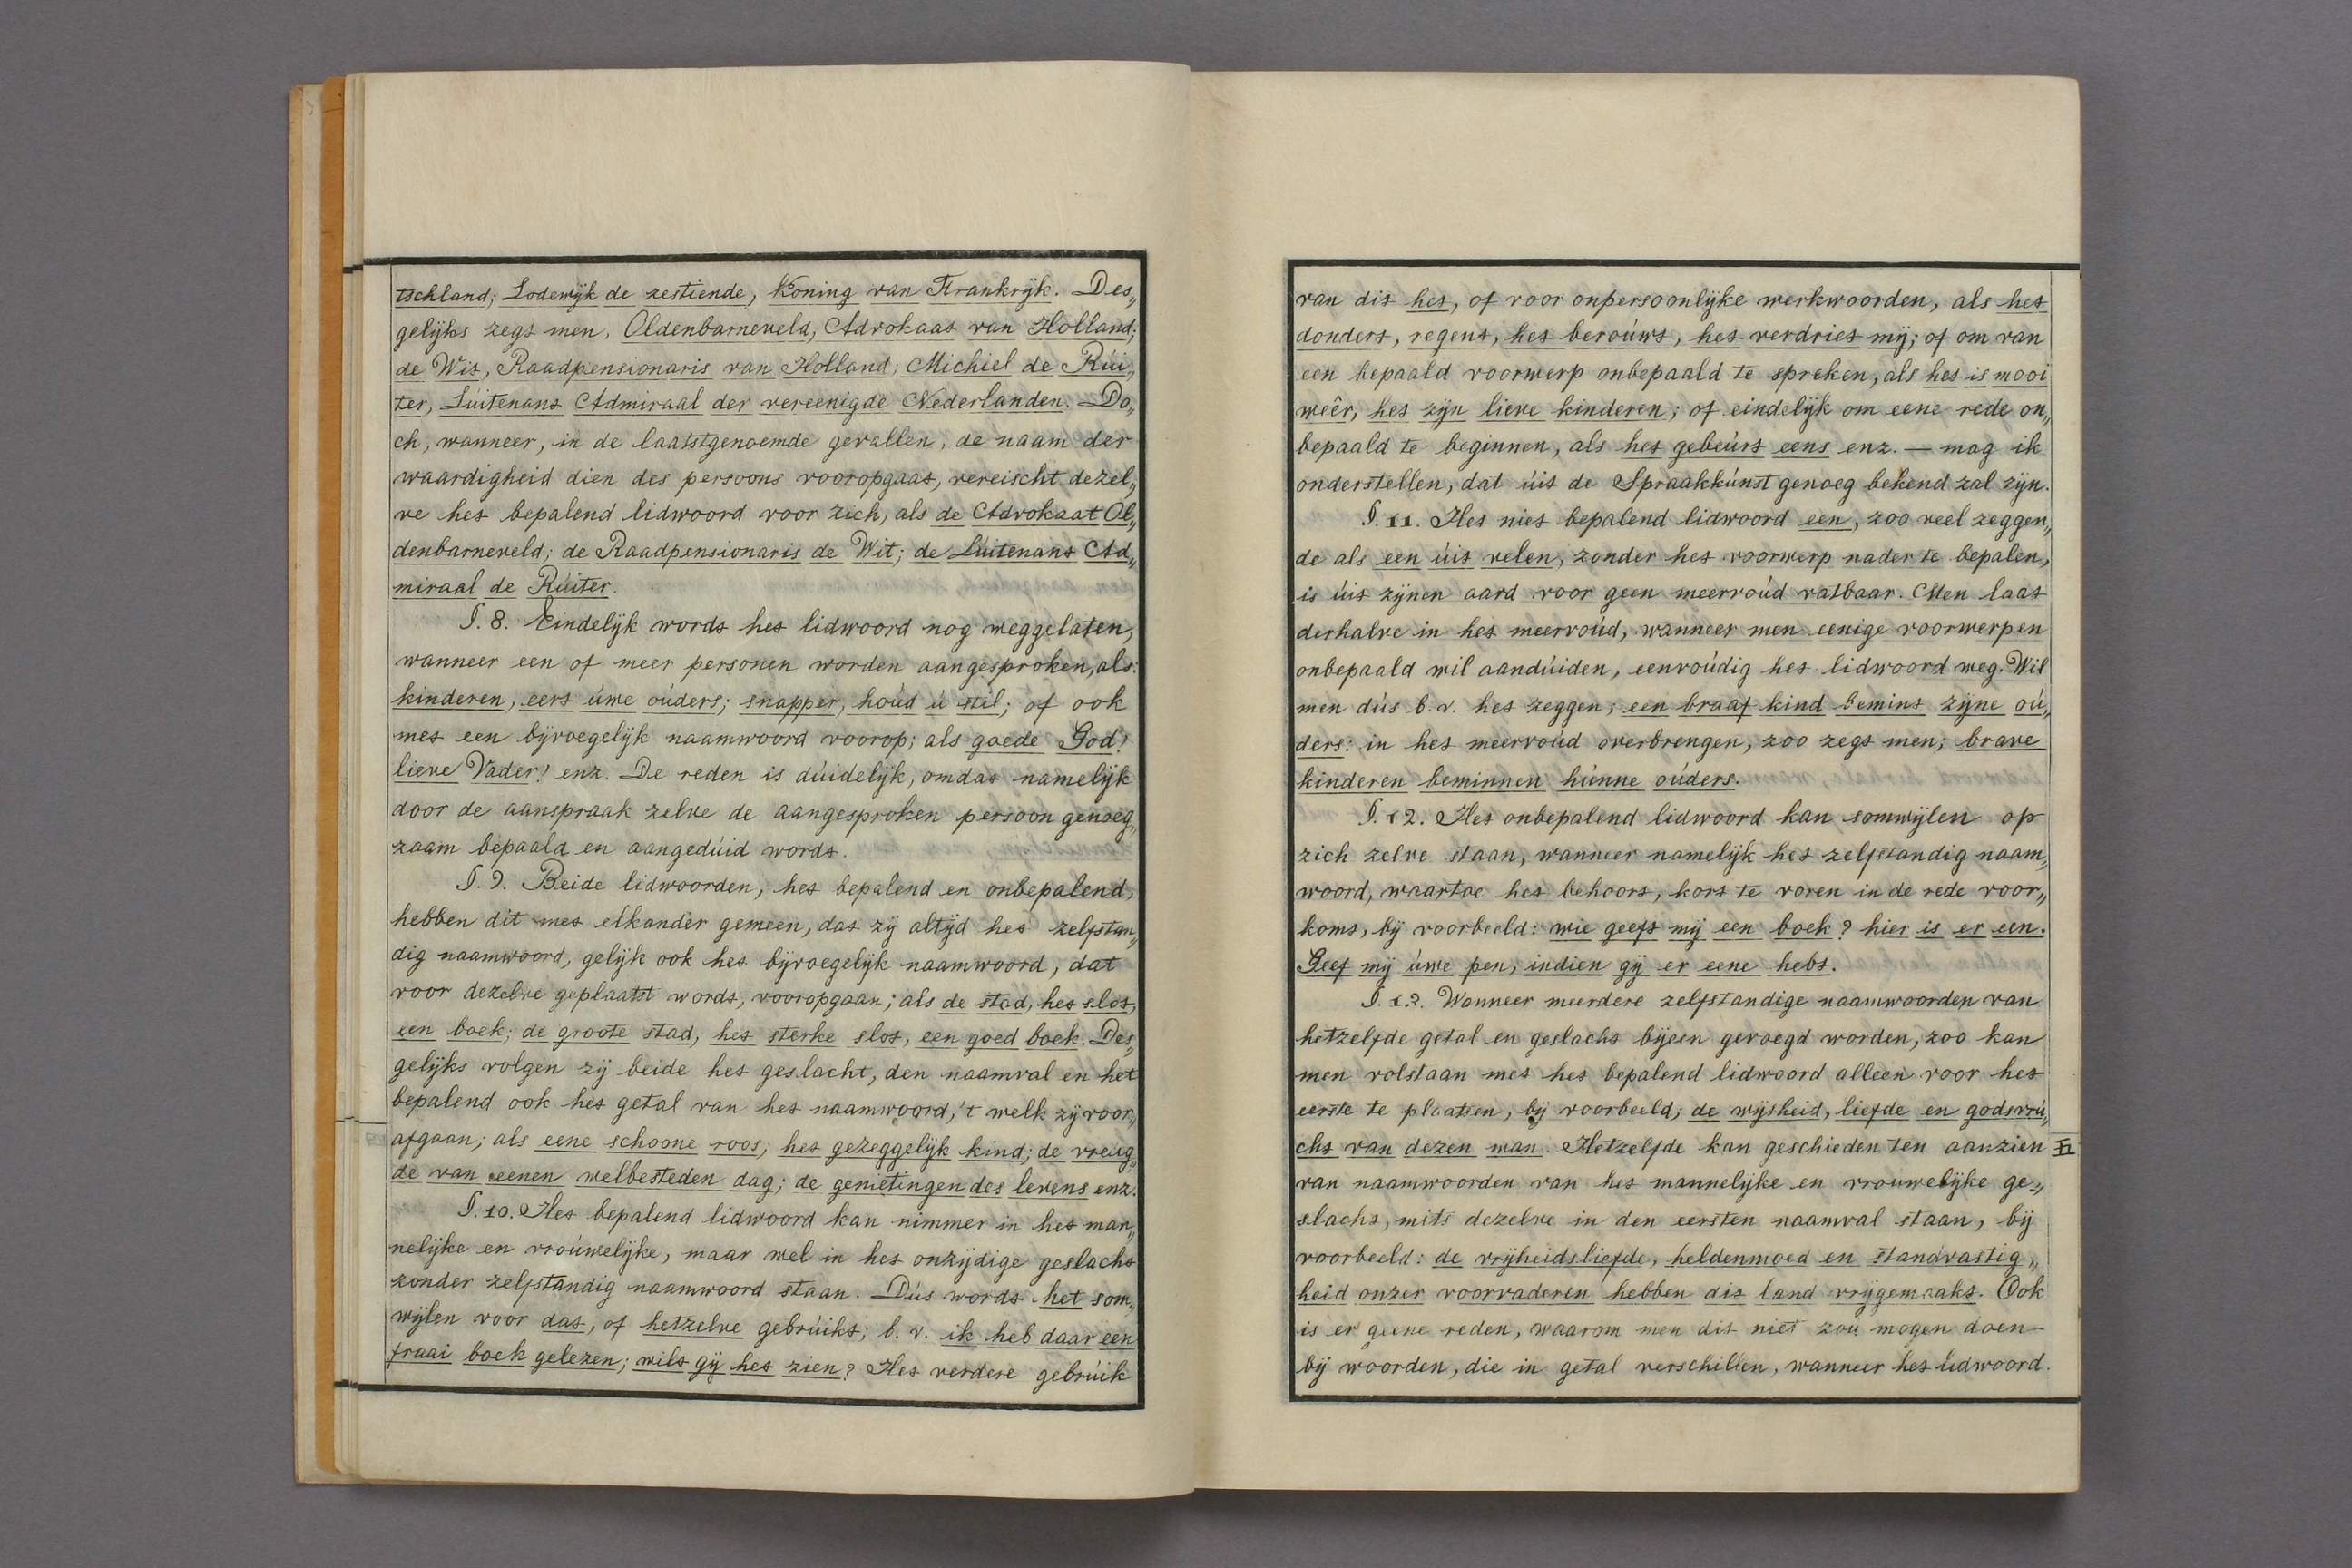 tschland; Lodewijk de zestiende, Koning van Frankrijk. Des„
gelijks zegt men, Oldenbarneveld, Advokaat van Holland;
de Wit, Raadpensionaris van Holland; Michiel de Rui„
ter, Luitenant Admiraal der vereenigde Nederlanden. Do„
ch, wanneer, in de laatstgenoemde gevallen, de naam der
waardigheid dien des persoons vooropgaat, vereischt dezel„
ve het bepalend lidwoord voor zich, als de Advokaat Ol„
denbarneveld; de Raadpensionaris de Wit; de Luitenant Ad„
miraal de Ruiter.
§. 8. Eindelijk wordt het lidwoord nog weggelaten,
wanneer een of meer personen worden aangesproken, als:
kinderen, eert uwe ouders; snapper, houd u stil; of ook
met een bijvoegelijk naamwoord voorop; als goede God!
lieve Vader! enz. De reden is duidelijk, omdat namelijk
door de aanspraak zelve de aangesproken persoon genoeg„
zaam bepaald en aangeduid wordt.
§. 9. Beide lidwoorden, het bepalend en onbepalend,
hebben dit met elkander gemeen, dat zij altijd het zelfstan„
dig naamwoord, gelijk ook het bijvoegelijk naamwoord, dat
voor dezelve geplaatst wordt, vooropgaan; als de stad, het slot,
een boek; de groote stad, het sterke slot, een goed boek. Des„
gelijks volgen zij beide het geslacht, den naamval en het
bepalend ook het getal van het naamwoord, 't welk zij voor„
afgaan; als eene schoone roos; het gezeggelijk kind; de vreug„
de van eenen welbesteden dag; de genietingen des levens enz.
§. 10. Het bepalend lidwoord kan nimmer in het man„
nelijke en vrouwelijke, maar wel in het onzijdige geslacht
zonder zelfstandig naamwoord staan. Dus wordt het som„
wijlen voor dat, of hetzelve gebruikt; b. v. ik heb daar een
fraai boek gelezen; wilt gij het zien? Het verdere gebruik
van dit het, of voor onpersoonlijke werkwoorden, als het
dondert, regent, het berouwt, het verdriet mij; of om van
een bepaald voorwerp onbepaald te spreken, als het is mooi
weêr, het zijn lieve kinderen; of eindelijk om eene rede on„
bepaald te beginnen, als het gebeurt eens enz. — mag ik
onderstellen, dat uit de Spraakkunst genoeg bekend zal zijn.
§. 11. Het niet bepalend lidwoord een, zoo veel zeggen„
de als een uit velen, zonder het voorwerp nader te bepalen,
is uit zijnen aard voor geen meervoud vatbaar. Men laat
derhalve in het meervoud, wanneer men eenige voorwerpen
onbepaald wil aanduiden, eenvoudig het lidwoord weg. Wil
men dus b. v. het zeggen; een braaf kind bemint zijne ou„
ders: in het meervoud overbrengen, zoo zegt men; brave
kinderen beminnen hunne ouders.
§. 12. Het onbepalend lidwoord kan somwijlen op
zich zelve staan, wanneer namelijk het zelfstandig naam„
woord, waartoe het behoort, kort te voren in de rede voor„
komt, bij voorbeeld: wie geeft mij een boek? hier is er een.
Geef mij uwe pen, indien gij er eene hebt.
§. 13. Wanneer meerdere zelfstandige naamwoorden van
hetzelfde getal en geslacht bijeen gevoegd worden, zoo kan
men volstaan met het bepalend lidwoord alleen voor het
eerste te plaatsen, bij voorbeeld; de wijsheid, liefde en godsvru„
cht van dezen man. Hetzelfde kan geschieden ten aanzien
van naamwoorden van het mannelijke en vrouwelijke ge„
slacht, mits dezelve in den eersten naamval staan, bij
voorbeeld: de vrijheidsliefde, heldenmoed en standvastig„
heid onzer voorvaderen hebben dit land vrijgemaakt. Ook
is er geene reden, waarom men dit niet zou mogen doen
bij woorden, die in getal verschillen, wanneer het lidwoord.